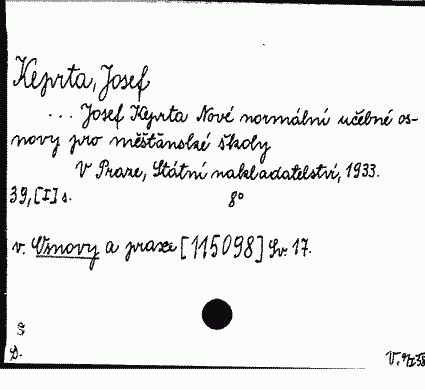 Keprta, Josef
... Josef Keprta Nové normální učebné os-
novy pro měšťanské školy
V Praze, Státní nakladatelství, 1933.
39, [I] s. 8°
v. Osnovy a praxe [115098] Sv. 17.
S
D.